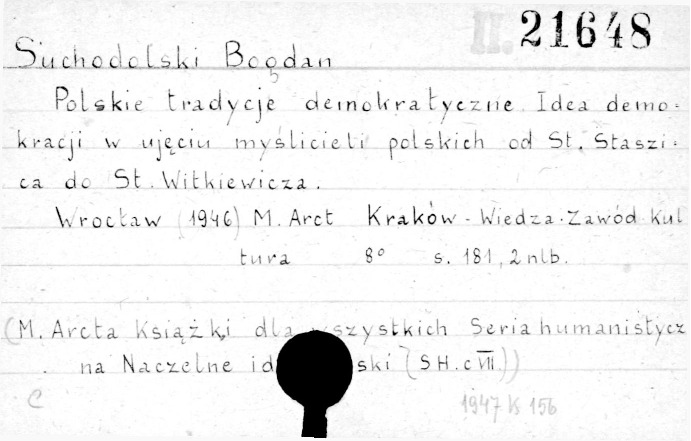 II. 21648
Suchodolski Bogdan
Polskie tradycje demokratyczne. Idea demo=
kracji w ujęciu myślicieli polskich od St. Staszi=
ca do St. Witkiewicza.
Wrocław (1946) M. Arct Kraków - Wiedza-Zawód Kul
tura 8° s. 181, 2 nlb.
(M. Arcta Książki dla wszystkich Seria humanistycz
na Naczelne id ski [SH. c VII.])
C 1947 K 156